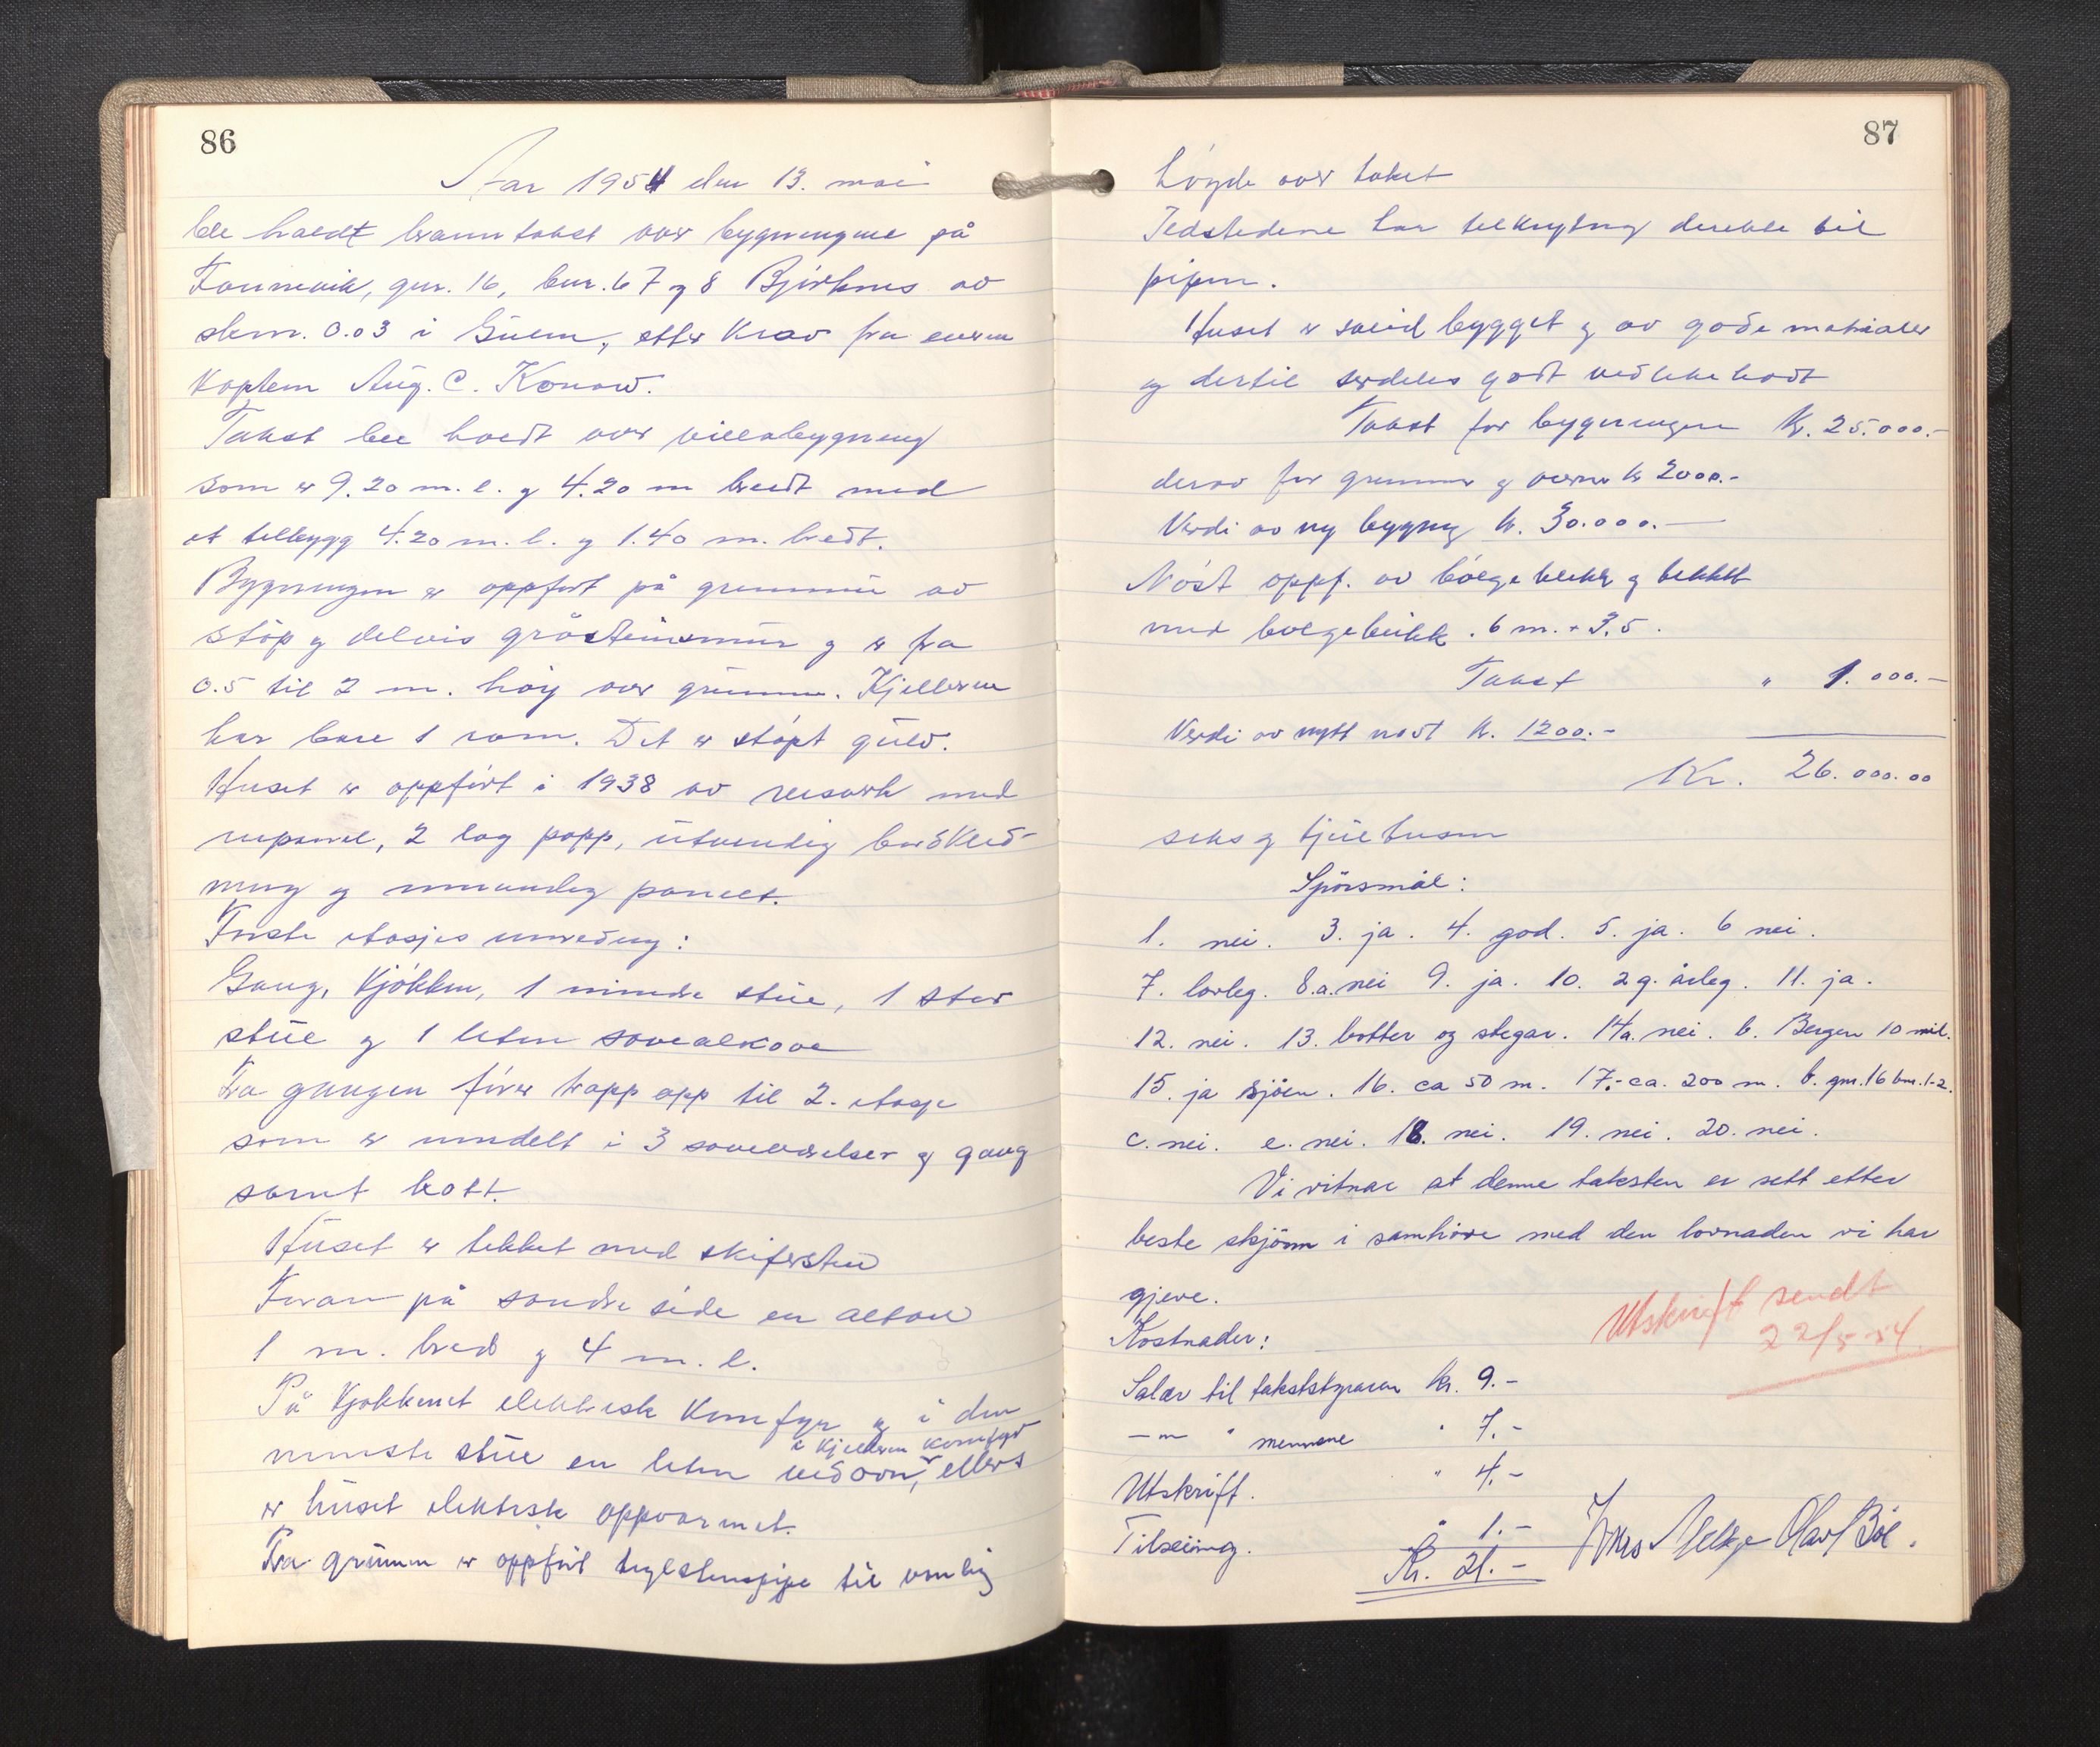 86
Aar 1954 den 13. mai
ble haldt branntakst over bygningene på
gnr. 16, bnr. 67 og 8 Bjørknes av
skm. 0.03 i Gulen, etter krav fra eieren
Kaptein Aug. C. Konow.
Takst ble holdt over villabygning
som er 9.20 m. l. og 4.20 m bredt med
et tilbygg 4.20 m. l. og 1.40 m. bredt.
Bygningen er oppført på grunnmur av
støp og delvis gråsteinsmur og er fra
0.5 til 2 m. høy over grunnen. Kjelleren
har bare 1 rom. Det er støpt gulv.
Huset er oppført i 1938 av reisverk med
rupanel, 2 lag papp, utvendig bordkled-
ning og innvendig panelt.
Første etasjes innredning:
Gang, kjøkken, 1 mindre stue, 1 stor
stue og 1 liten sovealkove
Fra gangen fører trapp opp til 2. etasje
som er inndelt i 3 soveværelser og gang
samt kott.
Huset er tekket med skifersten
Foran på søndre side en altan
1 m. bred og 4 m. l.
På kjøkkenet elektrisk komfyr og i den
i kjelleren komfyr
minste stue en liten vedovn, ellers
er huset elektrisk oppvarmet.
Fra grunnen er oppført teglstenspipe til vanlig
87
høyde over taket
Ildstedene har tilknytning direkte til
pipen.
Huset er solid bygget og av gode matrialer
og dertil særdeles godt vedlikeholdt
Takst for bygningen Kr. 25.000.-
derav for grunnmur og ovner kr 2000.-
Verdi av ny bygning kr. 30.000.-
Nøst oppf. av bølgeblikk og tekket
med bølgeblikk. 6 m. + 3.5.
Takst " 1.000.-
Verdi av nytt nøst kr. 1200.-
Kr. 26.000.00
seks og tjuetusen
Spørsmål:
1. nei. 3. ja. 4. god. 5. ja. 6 nei.
7. lovleg. 8.a. nei 9. ja. 10. 2 g. årleg. 11. ja.
12. nei. 13. bøtter og stegar. 14a. nei. b. Bergen 10 mil.
15. ja sjøen. 16. ca 50 m. 17.- ca. 200 m. b. gnr. 16 bnr. 1-2.
c. nei. e. nei. 18. nei. 19. nei. 20. nei.
Vi vitnar at denne taksten er sett etter
beste skjønn i samhøve med den lovnaden vi har
gjeve.
Utskrift sendt
22/5-54.
Kostnader:
Salær til takststyraren kr. 9.-
-"- " mennene " 7.-
Utskrift. " 4.-
Tilseiing. " 1.-
Kr. 21.-
Olav Bøe.